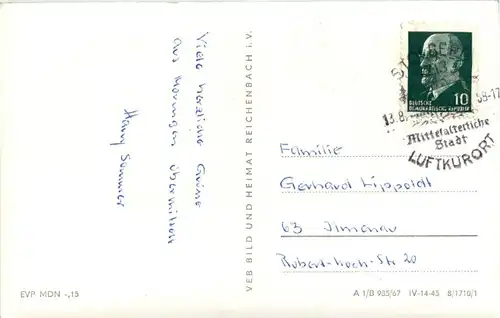 Viele herzliche Grüße
aus Morungen übermittelt
Harry Sommer
VEB BILD UND HEIMAT REICHENBACH I. V.
10
DEUTSCHE
DEMOKRATISCHE REPUBLIK
13.8.
-17
Mittelalterliche
Stadt
LUFTKURORT
Familie
Gerhard Lippoldt
63 Ilmenau
Robert-Koch-Str 20
EVP MDN -,15
A 1/B 985/67 IV-14-45 8/1710/1